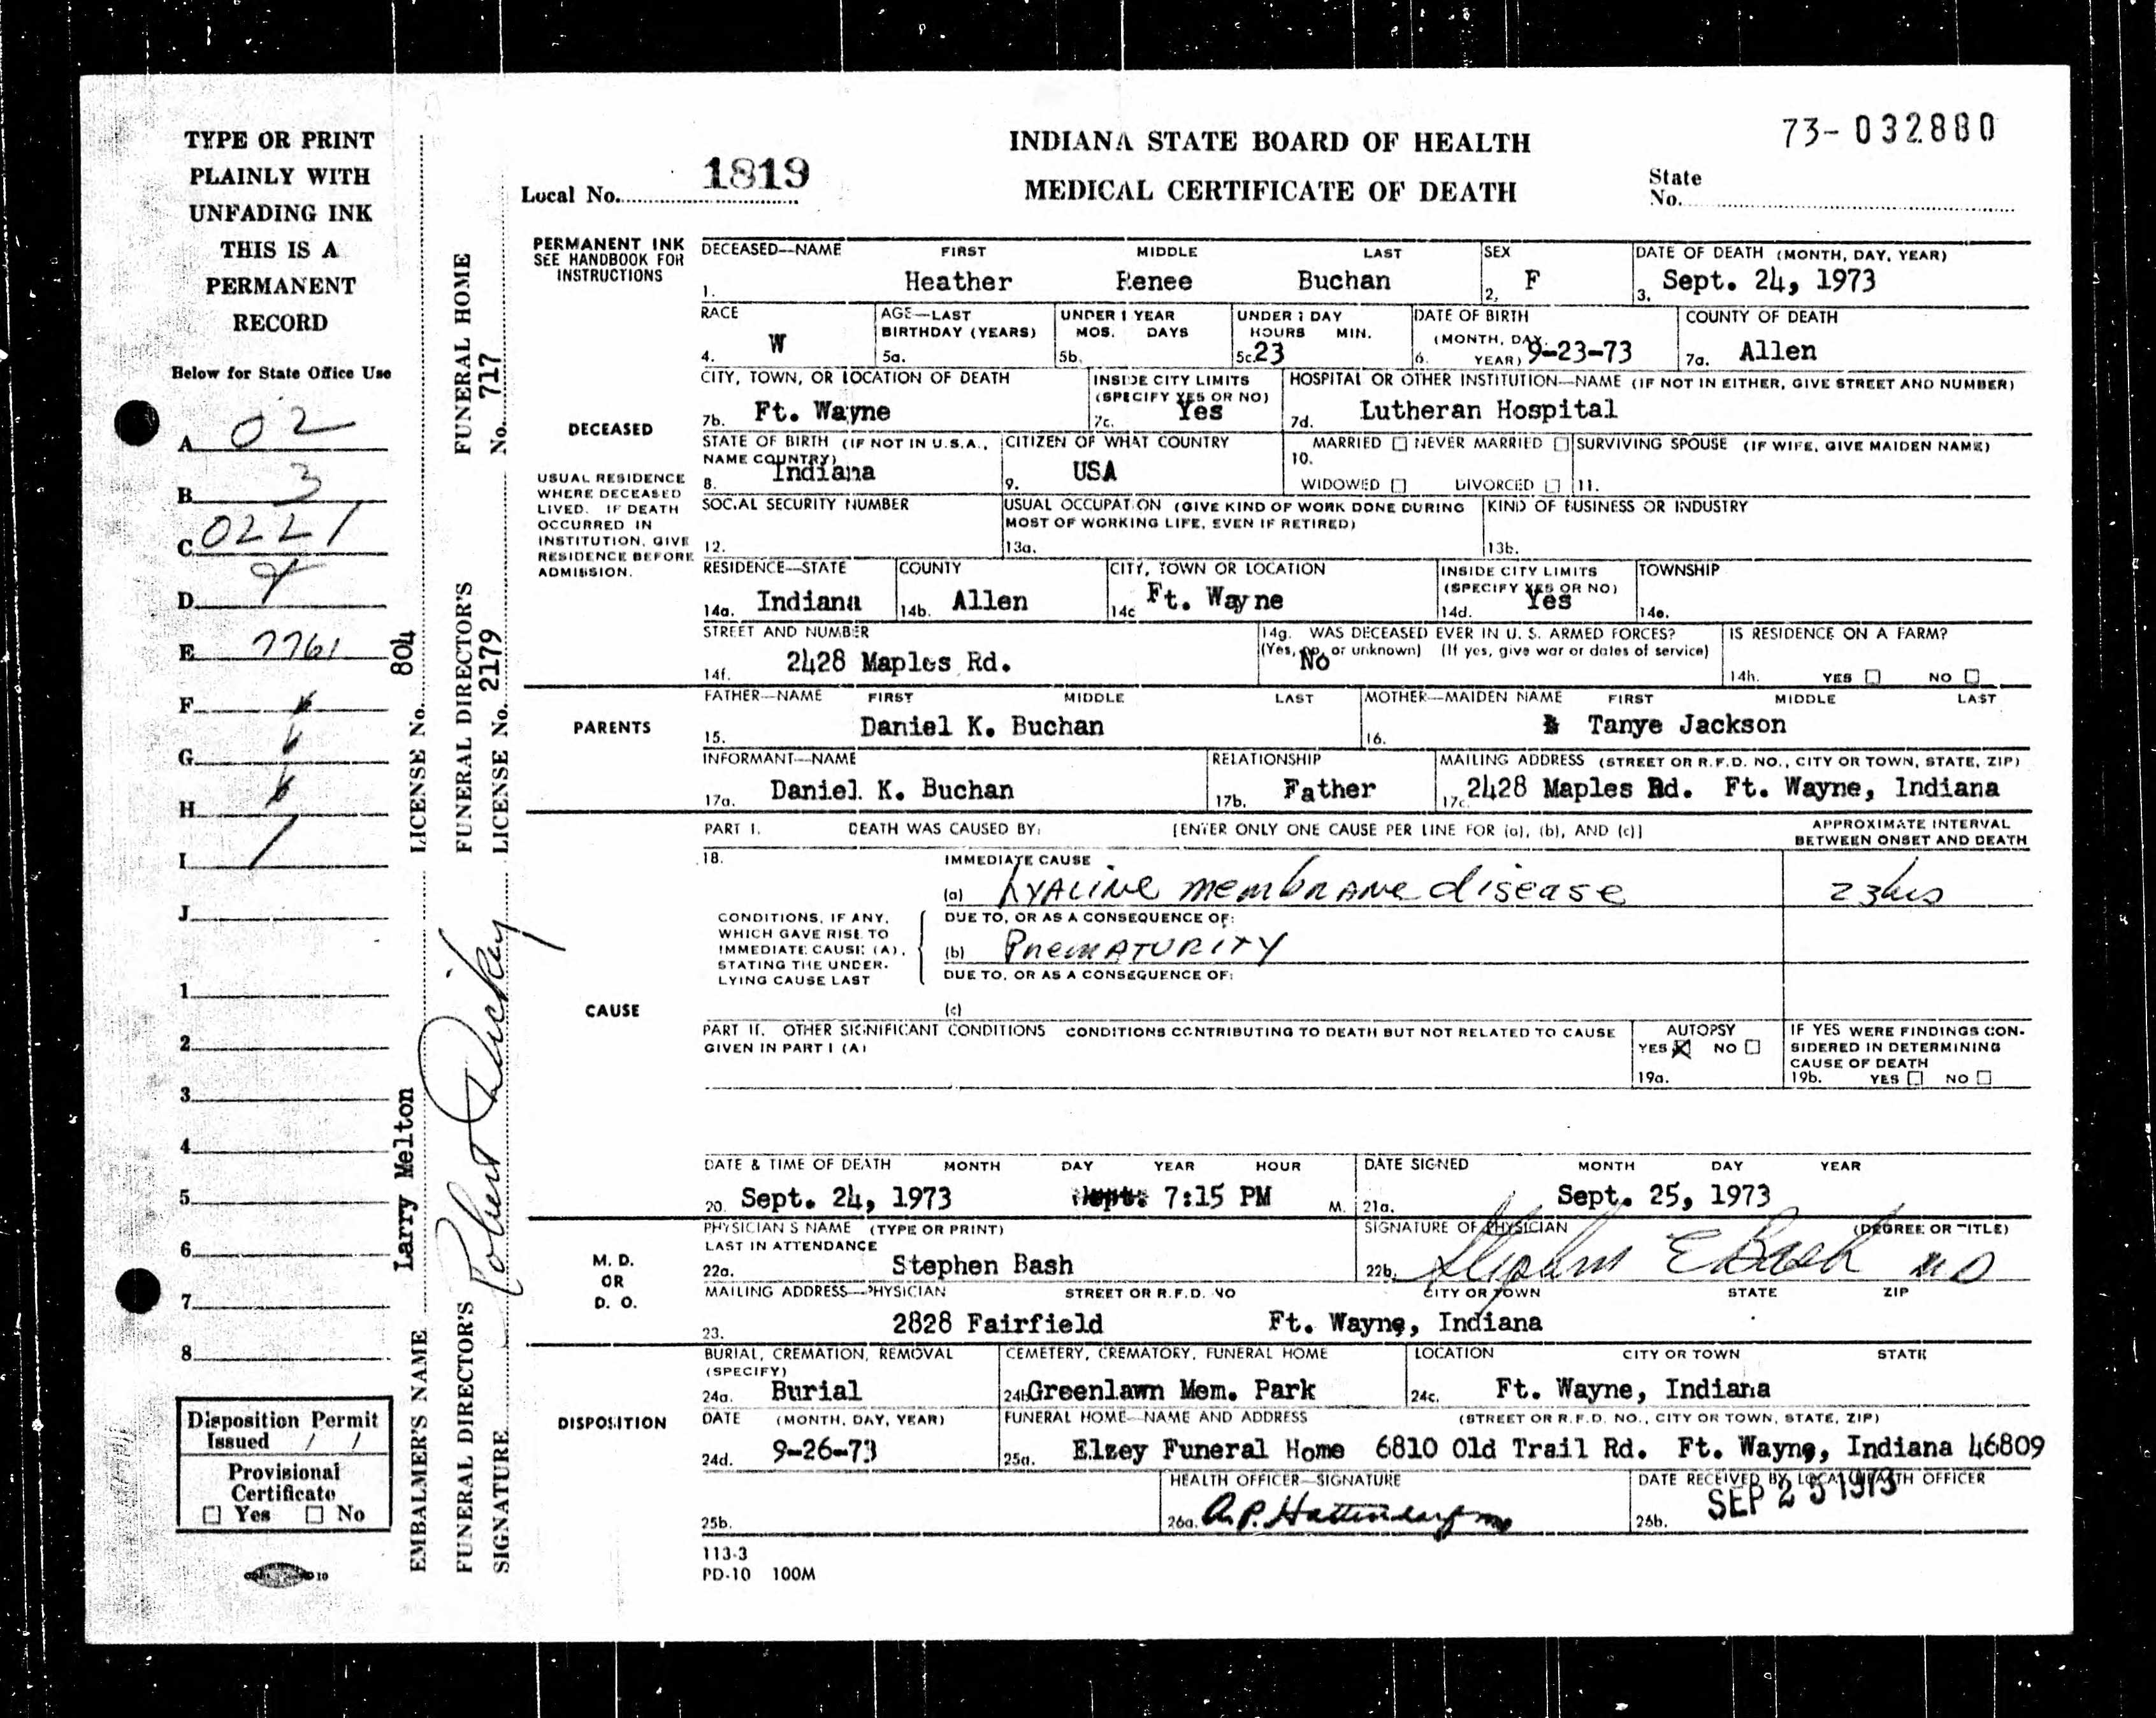 TYPE OR PRINT
PLAINLY WITH
UNFADING INK
THIS IS A
PERMANENT
RECORD
Below for State Office Use
A 02
B 3
C 0221
D
E 7761
F
G
H
I 1
J
1
2
3
4
5
6
7
8
Disposition Permit
Issued / /
Provisional
Certificate
☐ Yes ☐ No
EMBALMER'S NAME Larry Melton LICENSE No. 804
FUNERAL DIRECTOR'S SIGNATURE Robert
FUNERAL DIRECTOR'S LICENSE No. 2179
FUNERAL HOME No. 717
INDIANA STATE BOARD OF HEALTH
MEDICAL CERTIFICATE OF DEATH
73-032880
Local No. 1819
State
No.
PERMANENT INK
SEE HANDBOOK FOR
INSTRUCTIONS
DECEASED—NAME FIRST MIDDLE LAST SEX DATE OF DEATH (MONTH, DAY, YEAR)
1. Heather Renee Buchan 2. F 3. Sept. 24, 1973
RACE AGE—LAST BIRTHDAY (YEARS) UNDER 1 YEAR MOS. DAYS UNDER 1 DAY HOURS MIN. DATE OF BIRTH (MONTH, DAY, YEAR) COUNTY OF DEATH
4. W 5a. 5b. 5c. 23 6. 9-23-73 7a. Allen
CITY, TOWN, OR LOCATION OF DEATH INSIDE CITY LIMITS (SPECIFY YES OR NO) HOSPITAL OR OTHER INSTITUTION—NAME (IF NOT IN EITHER, GIVE STREET AND NUMBER)
7b. Ft. Wayne 7c. Yes 7d. Lutheran Hospital
DECEASED
STATE OF BIRTH (IF NOT IN U.S.A., NAME COUNTRY) CITIZEN OF WHAT COUNTRY MARRIED ☐ NEVER MARRIED ☐ SURVIVING SPOUSE (IF WIFE, GIVE MAIDEN NAME)
8. Indiana 9. USA 10. WIDOWED ☐ DIVORCED ☐ 11.
USUAL RESIDENCE
WHERE DECEASED
LIVED. IF DEATH
OCCURRED IN
INSTITUTION, GIVE
RESIDENCE BEFORE
ADMISSION.
SOCIAL SECURITY NUMBER USUAL OCCUPATION (GIVE KIND OF WORK DONE DURING MOST OF WORKING LIFE, EVEN IF RETIRED) KIND OF BUSINESS OR INDUSTRY
12. 13a. 13b.
RESIDENCE—STATE COUNTY CITY, TOWN OR LOCATION INSIDE CITY LIMITS (SPECIFY YES OR NO) TOWNSHIP
14a. Indiana 14b. Allen 14c Ft. Wayne 14d. Yes 14e.
STREET AND NUMBER 14g. WAS DECEASED EVER IN U. S. ARMED FORCES? (Yes, no, or unknown) (If yes, give war or dates of service) IS RESIDENCE ON A FARM?
14f. 2428 Maples Rd. No 14h. YES ☐ NO ☐
PARENTS
FATHER—NAME FIRST MIDDLE LAST MOTHER—MAIDEN NAME FIRST MIDDLE LAST
15. Daniel K. Buchan 16. Tanye Jackson
INFORMANT—NAME RELATIONSHIP MAILING ADDRESS (STREET OR R.F.D. NO., CITY OR TOWN, STATE, ZIP)
17a. Daniel K. Buchan 17b. Father 17c. 2428 Maples Rd. Ft. Wayne, Indiana
PART I. DEATH WAS CAUSED BY: [ENTER ONLY ONE CAUSE PER LINE FOR (a), (b), AND (c)] APPROXIMATE INTERVAL BETWEEN ONSET AND DEATH
18. IMMEDIATE CAUSE
(a) hyaline membrane disease 23hrs
CONDITIONS, IF ANY,
WHICH GAVE RISE TO
IMMEDIATE CAUSE (A),
STATING THE UNDER-
LYING CAUSE LAST
DUE TO, OR AS A CONSEQUENCE OF:
(b) Prematurity
DUE TO, OR AS A CONSEQUENCE OF:
(c)
CAUSE
PART II. OTHER SIGNIFICANT CONDITIONS CONDITIONS CONTRIBUTING TO DEATH BUT NOT RELATED TO CAUSE GIVEN IN PART I (A)
AUTOPSY YES ☒ NO ☐
19a.
IF YES WERE FINDINGS CON-
SIDERED IN DETERMINING
CAUSE OF DEATH
19b. YES ☐ NO ☐
DATE & TIME OF DEATH MONTH DAY YEAR HOUR DATE SIGNED MONTH DAY YEAR
20. Sept. 24, 1973 7:15 PM M. 21a. Sept. 25, 1973
M. D.
OR
D. O.
PHYSICIAN'S NAME (TYPE OR PRINT) LAST IN ATTENDANCE SIGNATURE OF PHYSICIAN (DEGREE OR TITLE)
22a. Stephen Bash 22b. Stephen E Bash MD
MAILING ADDRESS—PHYSICIAN STREET OR R.F.D. NO CITY OR TOWN STATE ZIP
23. 2828 Fairfield Ft. Wayne, Indiana
DISPOSITION
BURIAL, CREMATION, REMOVAL (SPECIFY) CEMETERY, CREMATORY, FUNERAL HOME LOCATION CITY OR TOWN STATE
24a. Burial 24b Greenlawn Mem. Park 24c. Ft. Wayne, Indiana
DATE (MONTH, DAY, YEAR) FUNERAL HOME—NAME AND ADDRESS (STREET OR R.F.D. NO., CITY OR TOWN, STATE, ZIP)
24d. 9-26-73 25a. Elzey Funeral Home 6810 Old Trail Rd. Ft. Wayne, Indiana 46809
HEALTH OFFICER—SIGNATURE DATE RECEIVED BY LOCAL HEALTH OFFICER
25b. 26a. A.P. Hattendorf MD 26b. SEP 25 1973
113-3
PD-10 100M